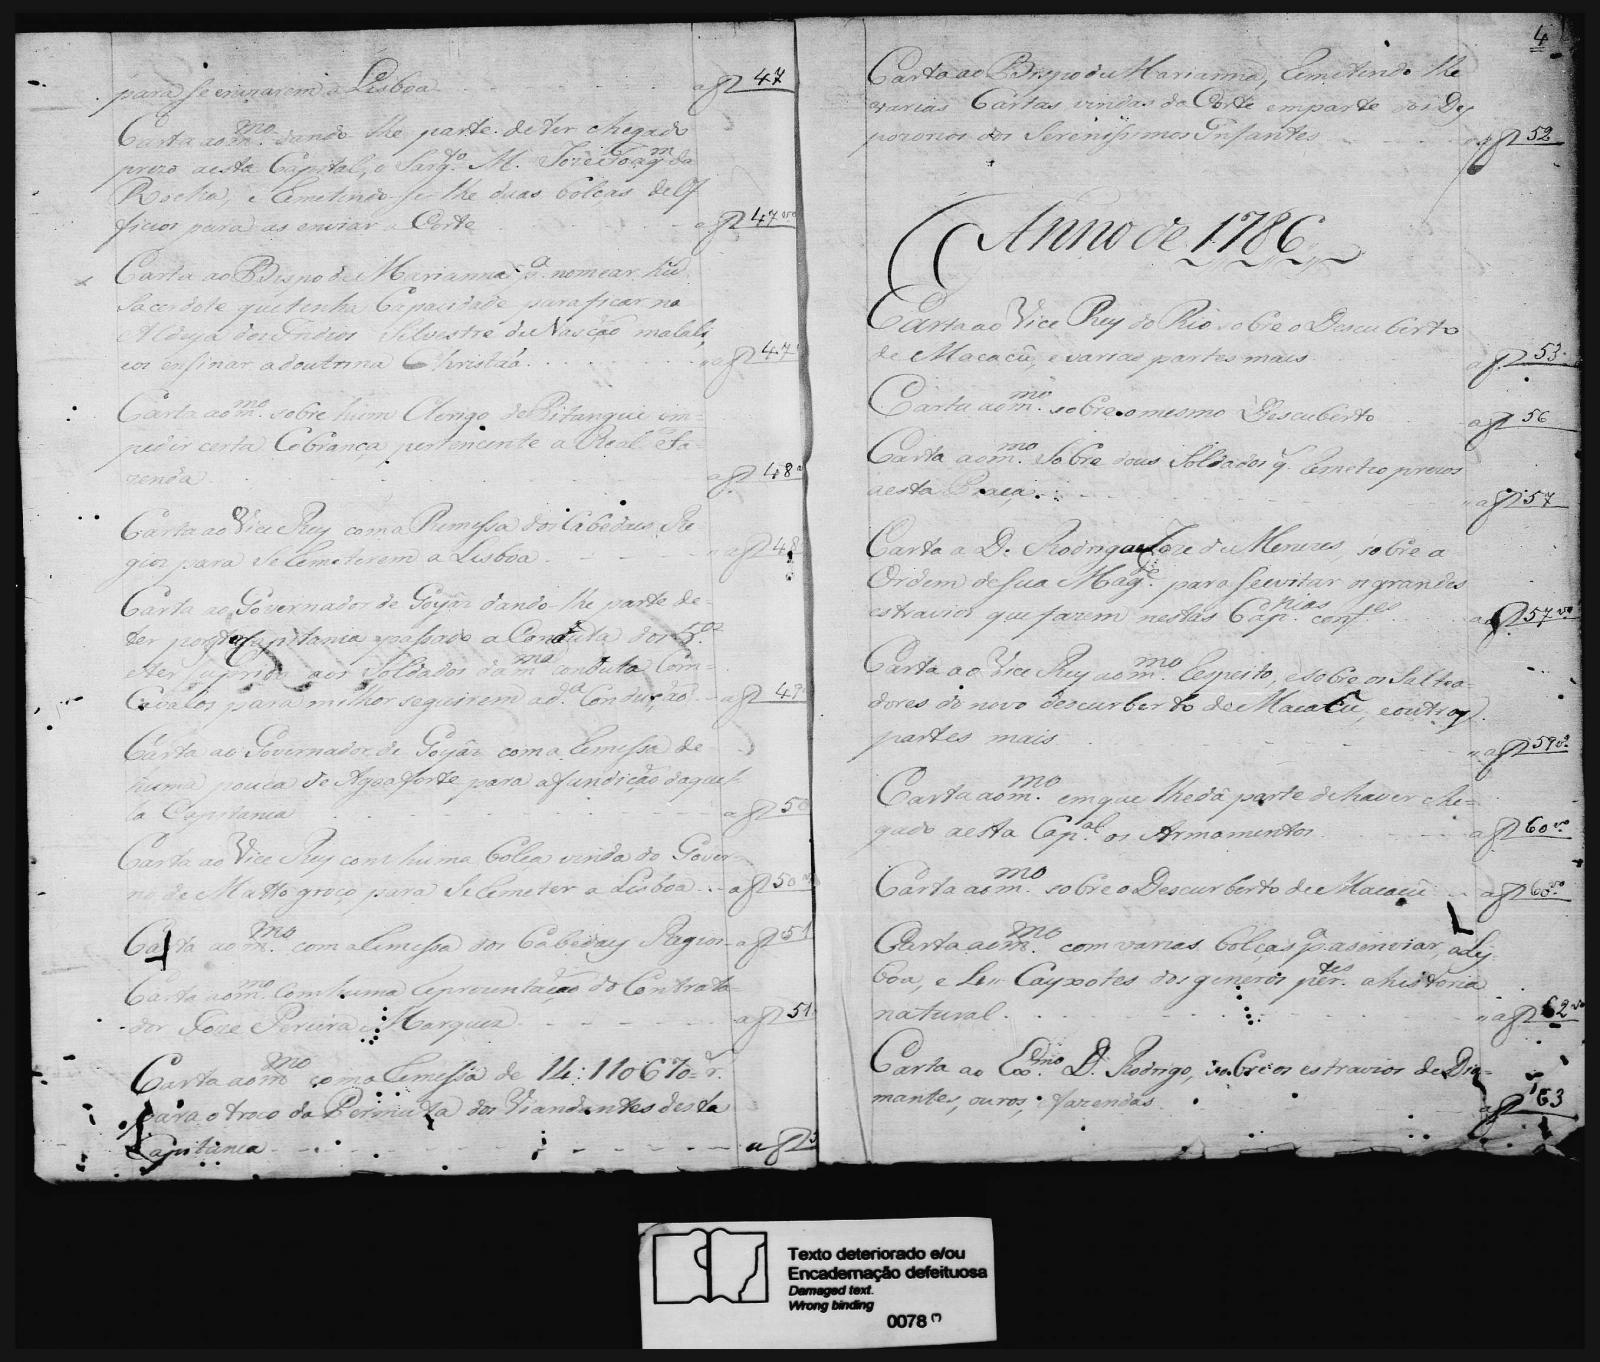 para se enviarem a Lisboa a f 47
Carta ao m.mo dando-lhe parte de ter chegado
prezo a esta Capital, o Sarg.to M. Joze Joaq.m da
Rocha, e Remetendo-se-lhe duas bolças de Of
ficios para as enviar a Corte a f 47 vo
Carta ao Bispo de Marianna p.a nomear hũ
Sacerdote que tenha Capacidade para ficar na
Aldeya dos Indios Silvestre de Nasção malali,
e os ensinar a doutrina Christãa a f 47
Carta ao m.mo sobre hum Clerigo de Pitangui im=
pedir certa Cobrança pertencente a Real Fa-
zenda a f 48
Carta ao Vice Rey com a Remessa dos Cabedaes Re-
gios para se Remeterem a Lisboa a f 48
Carta ao Governador de Goyâz dando-lhe parte de
ter por esta Capitania passado a Conduta dos 5.os
e ter suprido aos Soldados da m.ma conduta Com=
Cavalos para milhor seguirem a d.a Condução a f 49
Carta ao Governador de Goyâz com a Remessa de
huma pouca de Agoa forte para a fundição daquel-
la Capitania a f 50
Carta ao Vice Rey com huma bolça vinda do Gover-
no de Matto groço, para se Remeter a Lisboa a f 50 vo
Carta ao m.mo com a Remessa dos Cabedaes Regios a f 51
Carta ao m.mo com huma Reprezentação do Contrata-
dor Joze Pereira Marques a f 51
Carta ao m.mo com a Remessa de 14:110670 r.
para o troco da Permuta dos Viandantes desta
Capitania a f
4
Carta ao Bispo de Marianna, Remetendo-lhe
varias Cartas vindas da Corte em parte dos Des
pozorios dos Serenissimos Infantes a f 52
Anno de 1786
Carta ao Vice Rey do Rio sobre o Descuberto
de Macacû, e varias partes mais a f 53
Carta ao m.mo sobre o mesmo Descuberto a f 56
Carta ao m.mo Sobre dous Soldados q. Remeteo prezos
a esta Praça a f 57
Carta a D. Rodrigo Joze de Menezes, sobre a
Ordem de Sua Mag.de para se evitar os grandes
estravios que fazem nestas Cap.nias conf.es a f 57 vo
Carta ao Vice Rey ao m.mo Respeito, e sobre os Saltea-
dores do novo descurberto de Macacû, e outras
partes mais a f 59 vo
Carta ao m.mo em que lhe dâ parte de haver che=
gado a esta Cap.al os Armamentos a f 60 vo
Carta ao m.mo sobre o Descurberto de Macacû a f 60 vo
Carta ao m.mo com varias bolças p.a as enviar, a Lis-
boa, e Cayxotes dos generos per.tes a historia
natural a f 62 vo
Carta ao Ex.mo D. Rodrigo, sobre os estravios de Dia=
mantes, ouros, e fazendas a f 63
Texto deteriorado e/ou
Encadernação defeituosa
Damaged text.
Wrong binding
0078 (*)